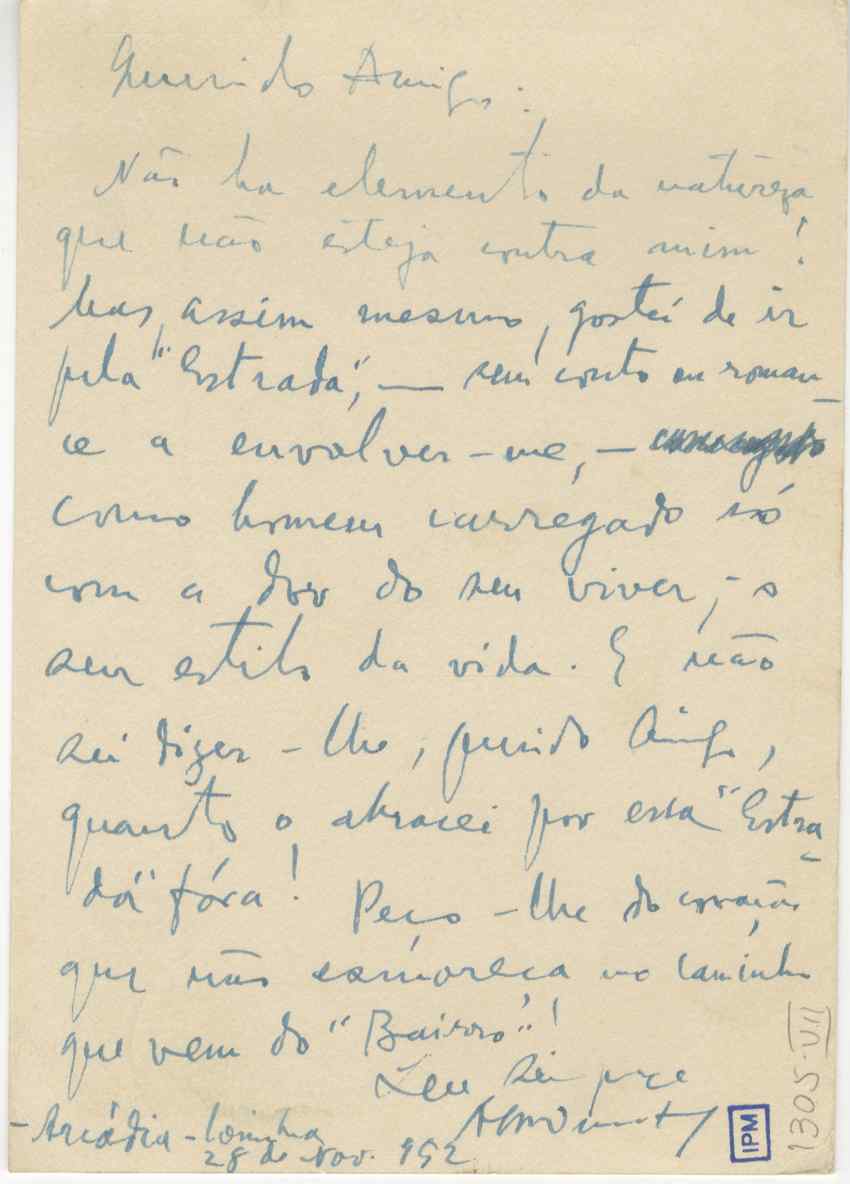 Querido Amigo:
Não ha elemento da natureza
que não esteja contra mim!
Mas, assim mesmo, gostei de ir
pela "Estrada", — sem conto ou roman-
ce a envolver-me, —
como homem carregado só
com a dor do seu viver, - o
seu estilo da vida. E não
sei dizer-lhe, querido Amigo,
quanto o abracei por essa "Estra-
da" fóra! Peço-lhe do coração
que não esmoreça no caminho
que vem do "Bairro"!
Seu Sempre
- Arcádia -
28 de Nov. 952
IPM
1305-VII